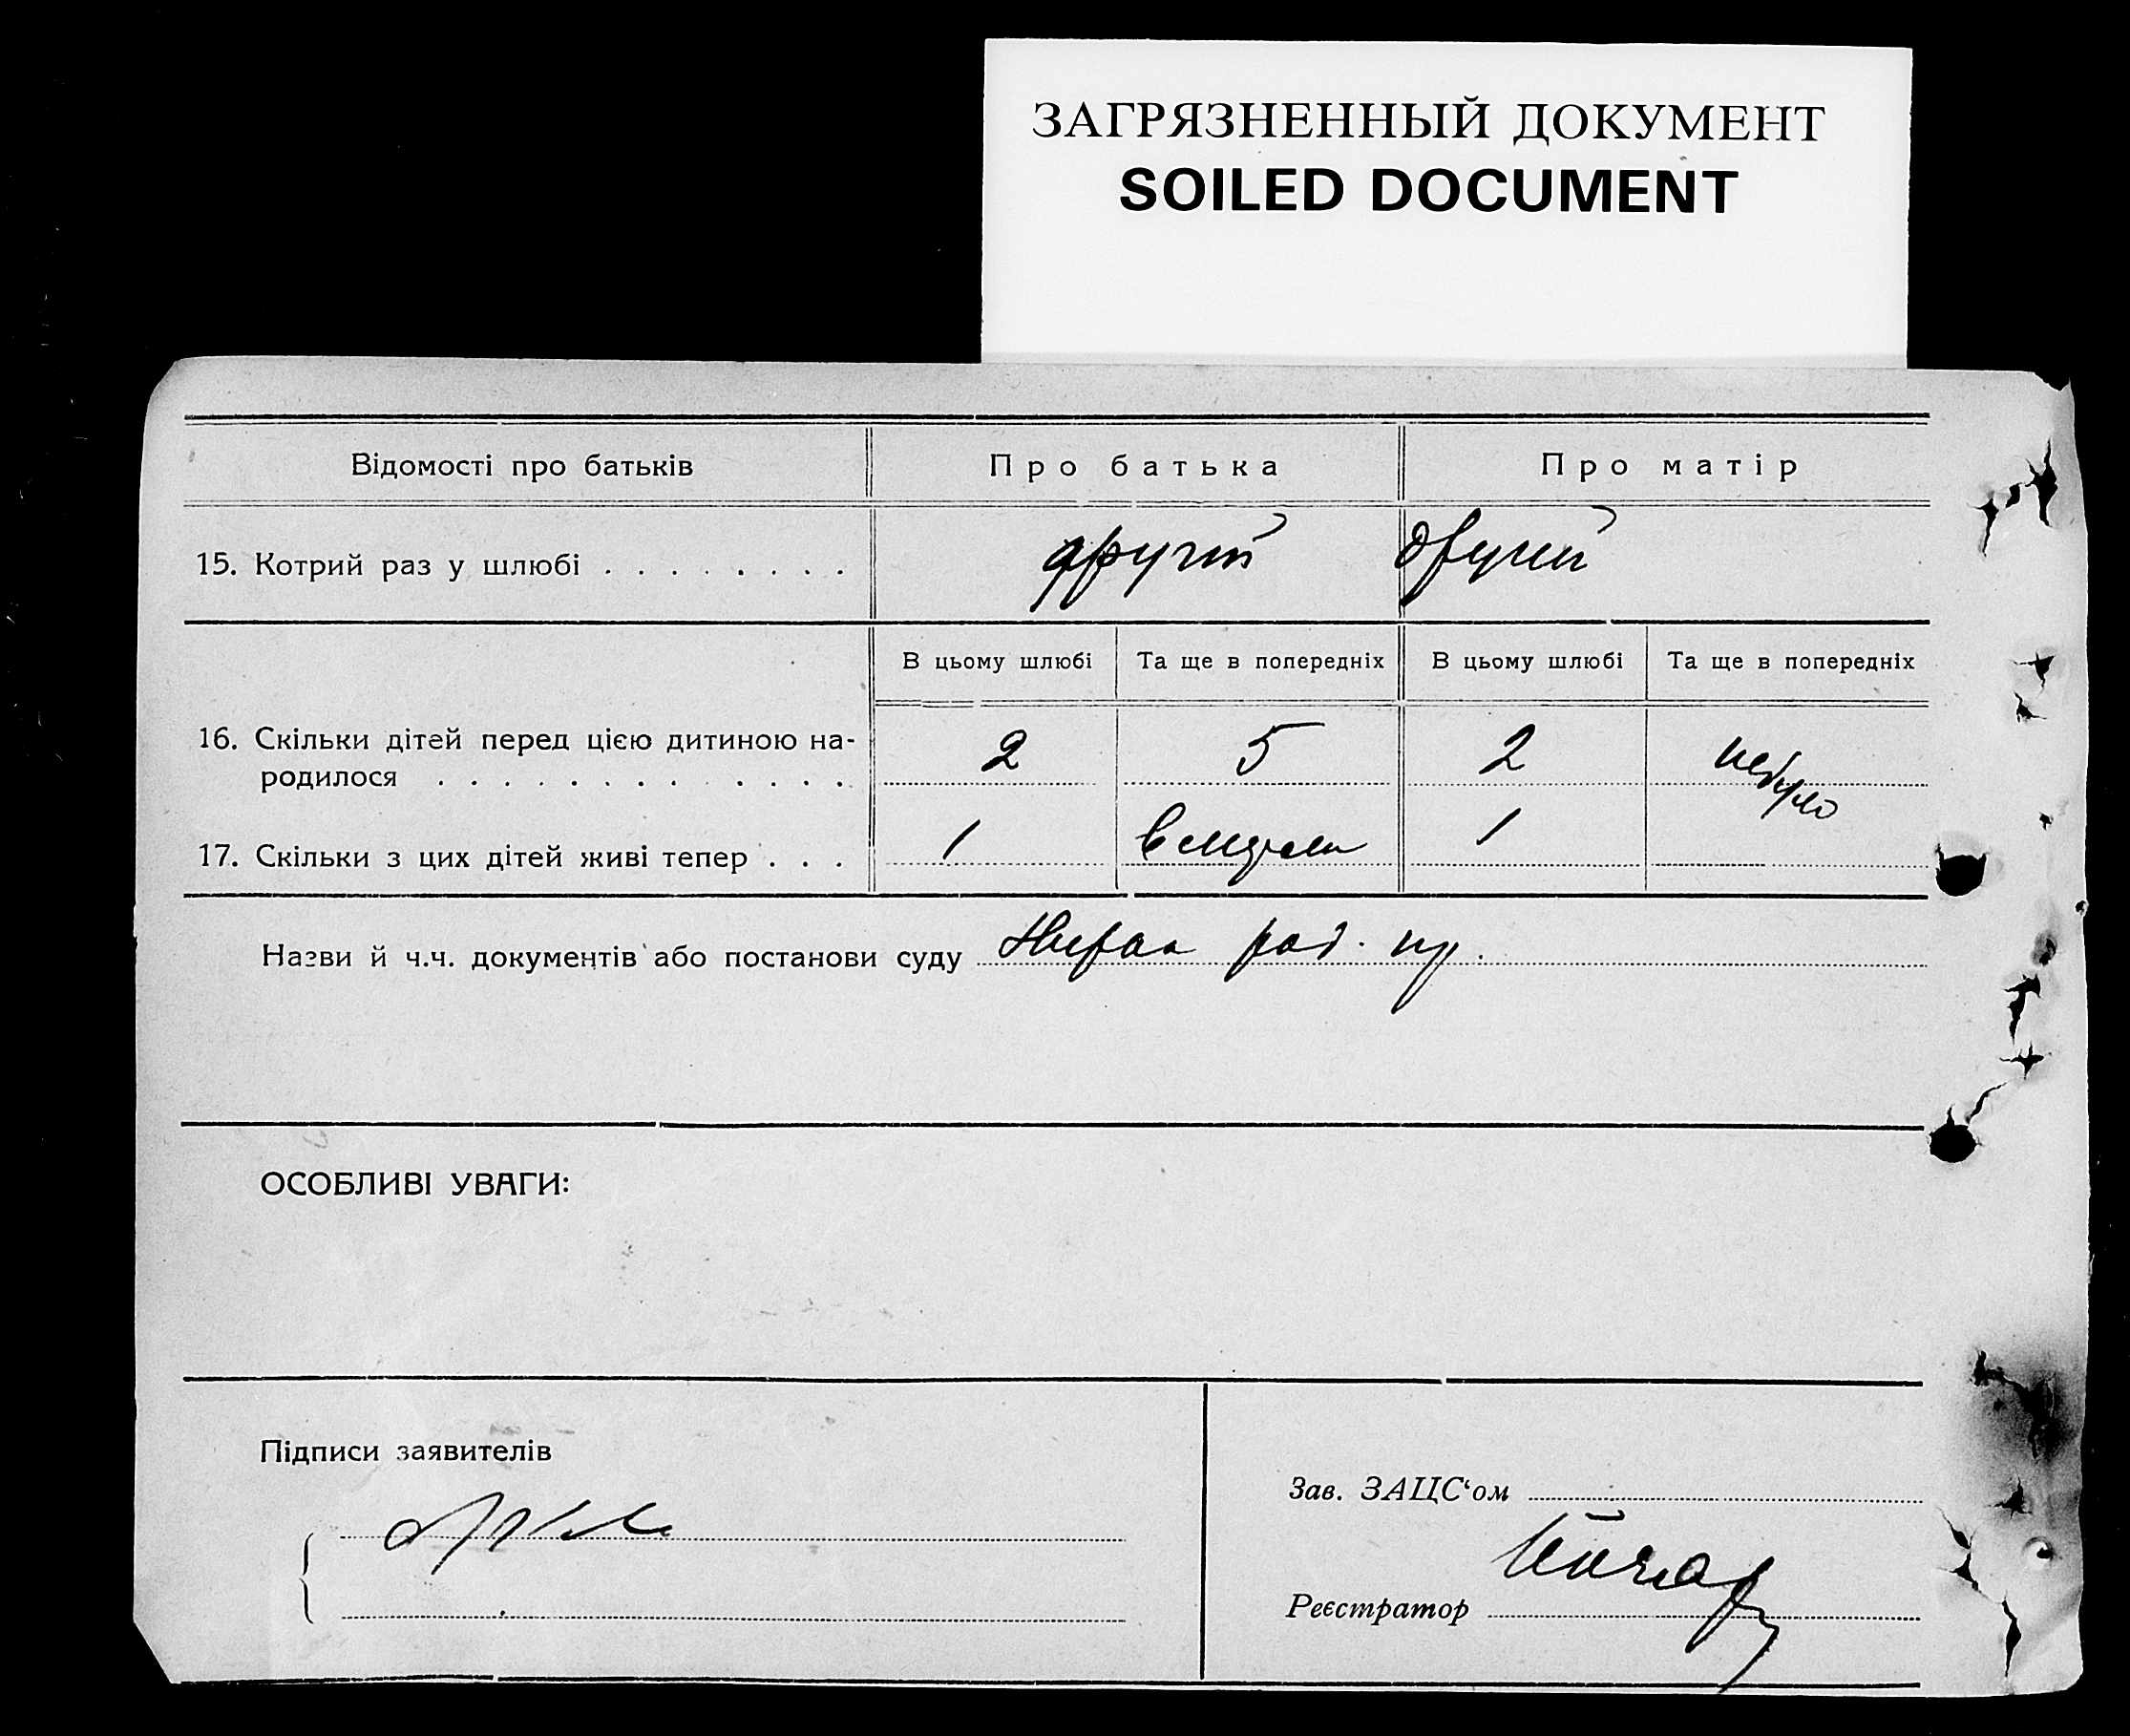 ЗАГРЯЗНЕННЫЙ ДОКУМЕНТ
SOILED DOCUMENT
Відомості про батьків Про батька Про матір
15. Котрий раз у шлюбі . . . . . . . . другий другий
В цьому шлюбі Та ще в попередніх В цьому шлюбі Та ще в попередніх
16. Скільки дітей перед цією дитиною на-
родилося . . . . . . . . . . . . . 2 5 2 небуло
17. Скільки з цих дітей живі тепер . . . 1 1
Назви й ч.ч. документів або постанови суду
ОСОБЛИВІ УВАГИ:
Підписи заявителів
Зав. ЗАЦС‘ом
Реєстратор